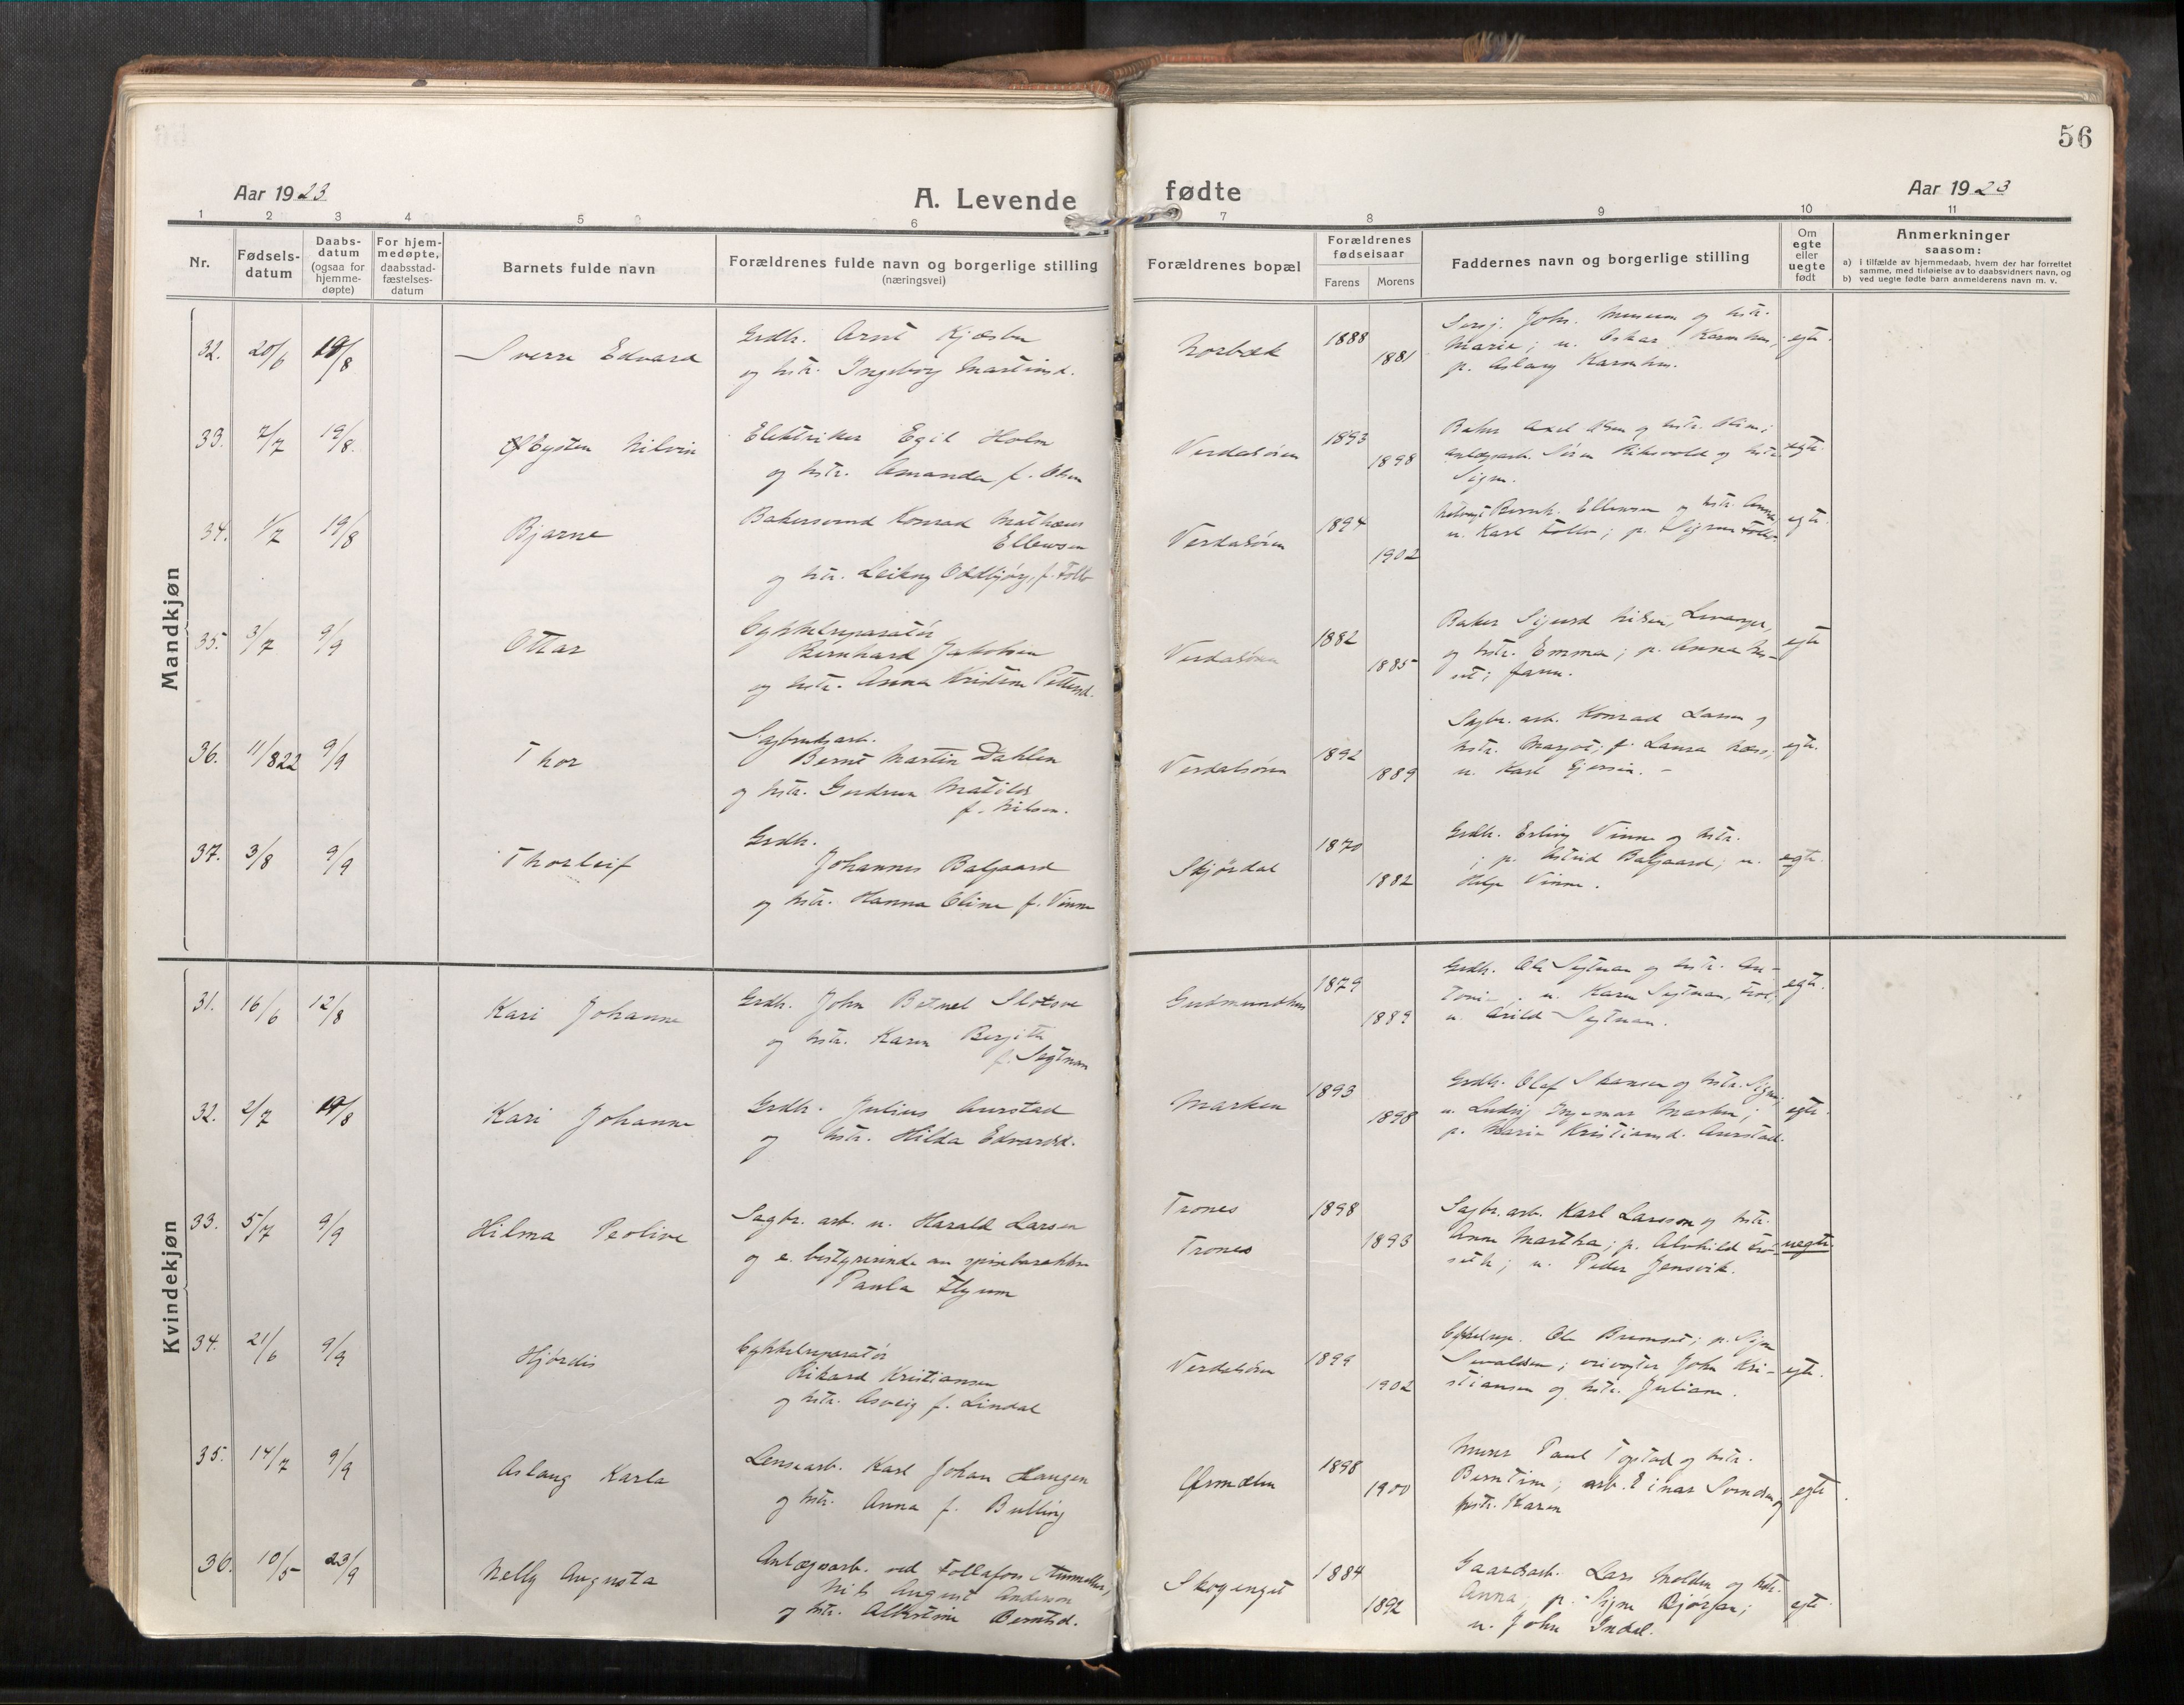 56
Aar 1923
A. Levende fødte
Aar 1923
1 2 3 4 5 6 7 8 9 10 11
Nr.
Fødsels-
datum
Daabs-
datum
(ogsaa for
hjemme-
døpte)
For hjem-
medøpte,
daabsstad-
fæstelses-
datum
Barnets fulde navn
Forældrenes fulde navn og borgerlige stilling
(næringsvei)
Forældrenes bopæl
Forældrenes
fødselsaar
Farens Morens
Faddernes navn og borgerlige stilling
Om
egte
eller
uegte
født
Anmerkninger
saasom:
a) i tilfælde av hjemmedaab, hvem der har forrettet
samme, med tilføielse av to daabsvidners navn, og
b) ved uegte fødte barn anmelderens navn m. v.
Mandkjøn
32. 20/6 19/8 Sverre Edvard
Grdbr. Arnt
og hstr. Ingeborg Martinsd.
1888
1881
Marie; u. Oskar
p. Aslaug
egte.
33. 2/7 19/8. Eysten
Elektriker Egil Holm
og hstr. Amanda f. Olsen
Verdalsøren
1893
1898
Baker Axel Olsen og hstr.
og hstr.
egte.
34. 1/7 19/8 Bjarne
Bakersvend Konrad
Ellewsen
og hstr. Oddbjørg, f. Follo
Verdalsøren
1894
1902
Bernh. Ellewsen og hstr. Anna
u. Karl Follo; p. Sigrun Follo
egte.
35. 3/7 9/9 Ottar
Cykkelreparatør
Bernhard Jakobsen
og hstr. Anna Kristine Pettersd.
Verdalsøren
1882
1885
Baker Sigurd Nilsen, Levanger,
og hstr. Emma; p. Anna
faren.
egte
36. 11/8 22 9/9 Thor
Sagbruksarb.
Bernt Martin Dahlen
og hstr. Gudrun Matilde
f. Nilsen.
Verdalsøren
1892
1889
Sagbr. arb. Konrad Larsen og
hstr. Margot; f. Laura
u. Karl
egte.
37. 3/8 9/9 Thorleif
Grdbr.
Johannes Balgaard
og hstr. Hanna Oline f. Vinne
Skjørdal
1870
1882
Grdbr. Erling Vinne og hstr.
; p. Astrid Balgaard; u.
Helge Vinne.
egte.
Kvindekjøn
31. 16/6 12/8 Kari Johanne
Grdbr. John Slotsve
og hstr. Karen Bergitte
f. Segtnan
1879
1889
Grdbr. Ole Segtnan og hstr. An-
tonie; u. Karen Segtnan,
u. Arild Segtnan.
egte.
32. 2/7 19/8 Kari Johanne
Grdbr. Julius Aurstad
og hstr. Hilda Edvardsd.
Marken
1893
1898
Grdbr. Olaf Skansen og hstr.
u. Ludvig Ingemar Marken;
p. Marie Kristiansd. Aurstad.
egte.
33. 5/7 9/9 Hilma Peolive
Sagbr. arb. u. Harald Larsen
og e. bestyrerinde av spisebarakken
Paula Flyum
Trones
Trones
1898
1893
Sagbr. arb. Karl Larsson og hstr.
Anne Martha; p. Alvhild
u. Peder Jensvik.
uegte.
34. 21/6 9/9 Hjørdis
Cykkelreparatør
Rikard Kristiansen
og hstr. Asveig f. Lindal
Verdalsøren
1899
1902
Cykkelrep. Ole Bremset; p. Signe
Sevaldsen; John Kri-
stiansen og hstr. Juliane.
egte.
35. 14/7 9/9 Aslaug Karla
Lensearb. Karl Johan Haugen
og hstr. Anna f. Bulling
Ørmelen
1898
1900
Murer Paul Topstad og hstr.
Berntine; arb. Einar og
hstr. Karen
egte.
36. 10/5 23/9 Nelly Augusta
Anlægsarb. ved Follafoss
Nils August Anderson
og hstr. Berntsd.
Skogenget
1884
1892
Gaardsarb. Lars Molden og hstr.
Anna; p. Signe Bjørgan;
u. John Indal.
egte.